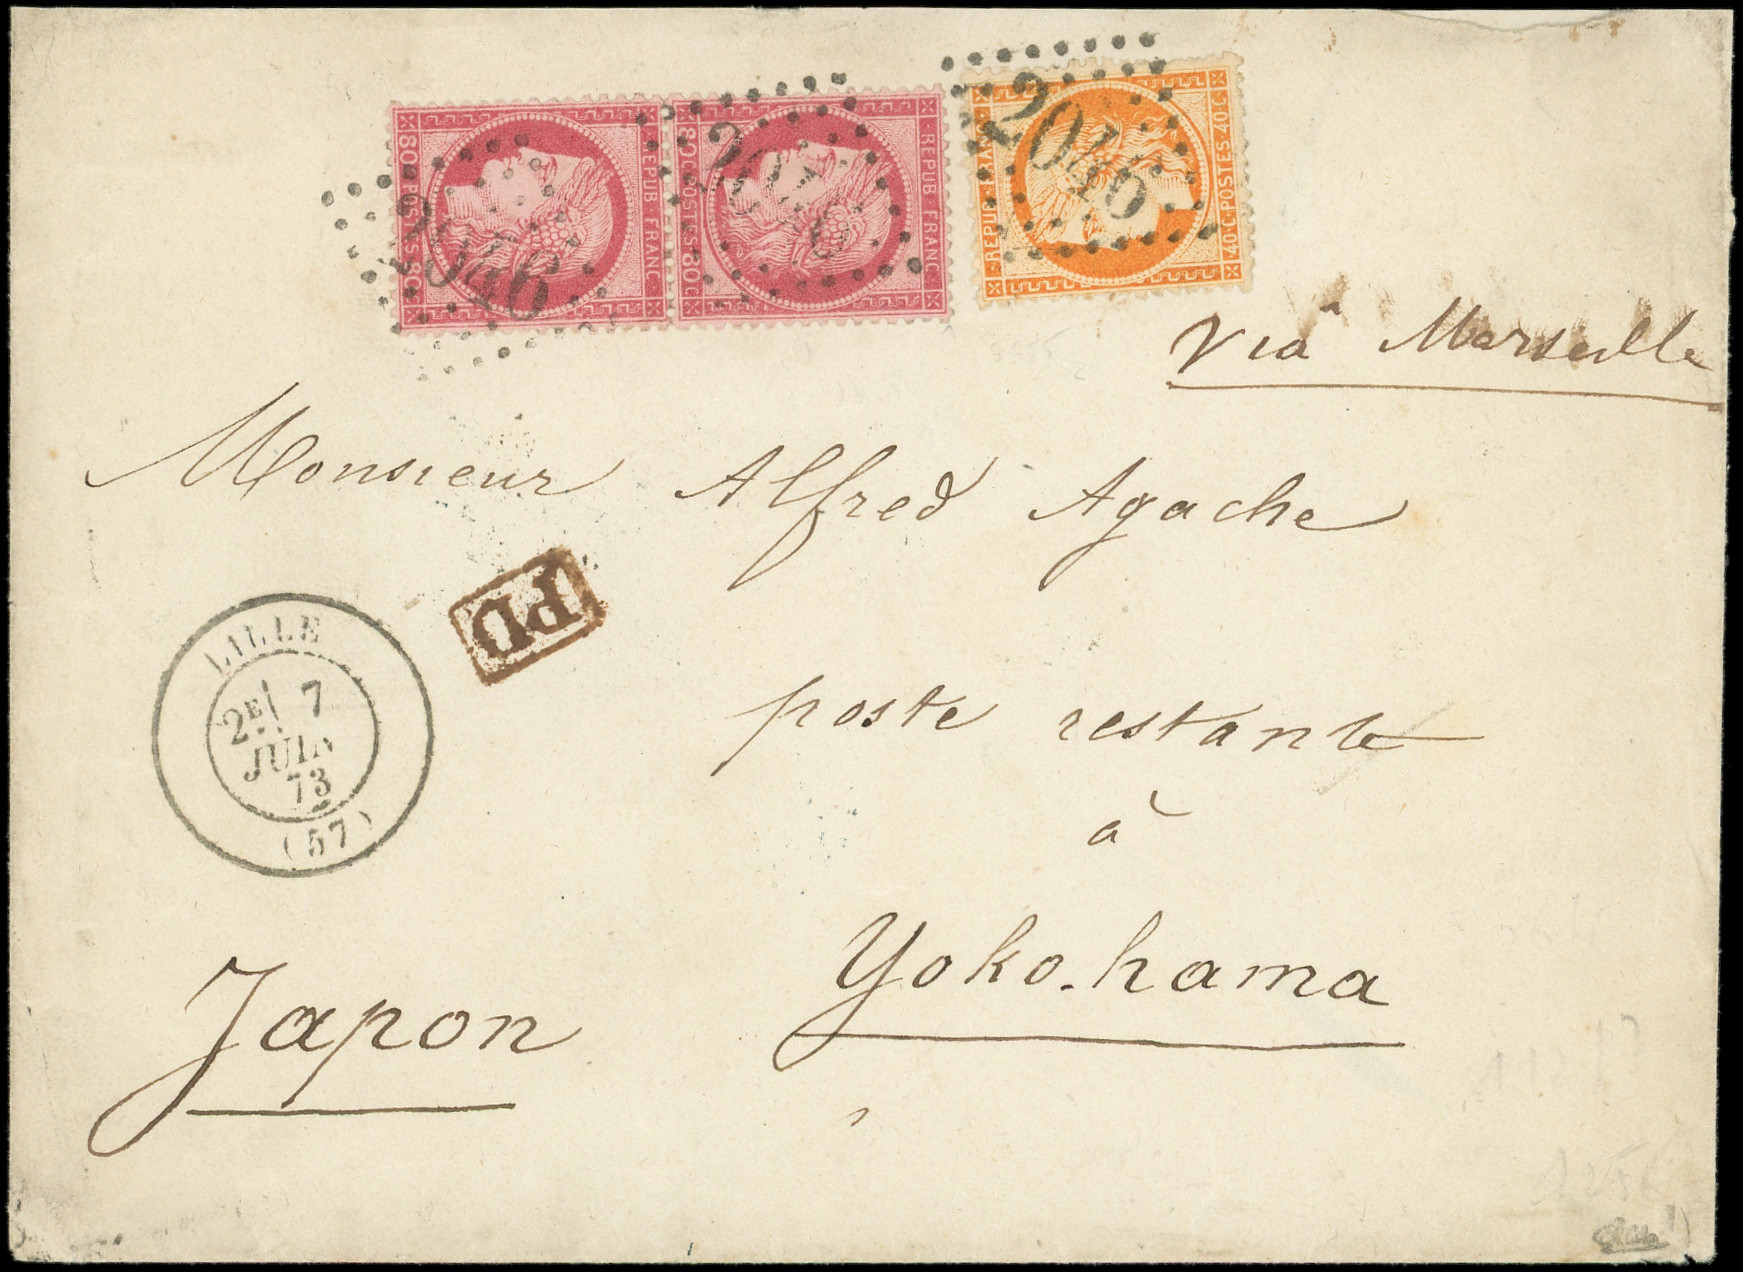 REPUB FRANC
80 C POSTES 80C
2046
REPUB FRANC
80 C POSTES 80C
2046
REPUB FRANC
40 C POSTES 40 C
2046
Viâ Marseille
Monsieur Alfred Agache
PD
LILLE
2E 7
JUIN
73
(57)
poste restante
à
Yoko-hama
Japon